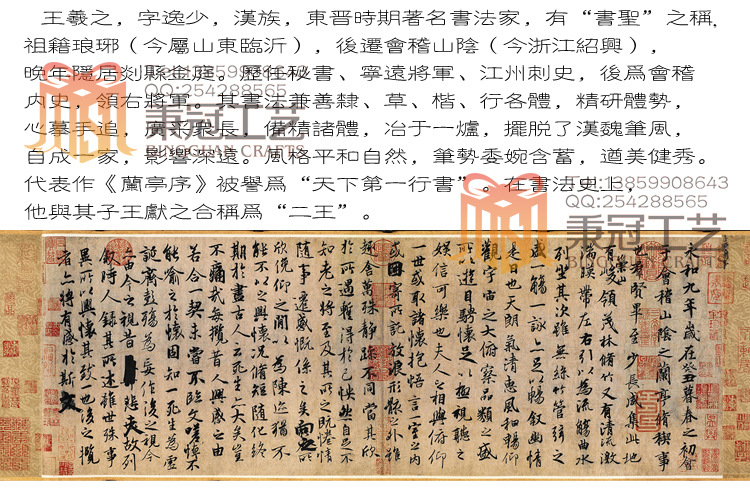 王羲之，字逸少，漢族，東晉時期著名書法家，有“書聖”之稱.
祖籍琅琊（今屬山東臨沂），後遷會稽山陰（今浙江紹興），
晚年隱居剡縣金庭。歷任秘書、寧遠將軍、江州刺史，後爲會稽
內史，領右將軍。其書法兼善隸、草、楷、行各體，精研體勢，
心摹手追，廣采衆長，備精諸體，冶于一爐，擺脱了漢魏筆風，
自成一家，影響深遠。風格平和自然，筆勢委婉含蓄，遒美健秀。
代表作《蘭亭序》被譽爲“天下第一行書”。在書法史上，
他與其子王獻之合稱爲“二王”。
TEL:13859908643
QQ:254288565
秉冠工艺
BINGGUAN CRAFTS
TEL:13859908643
QQ:254288565
秉冠工艺
BINGGUAN CRAFTS
永和九年歲在癸丑暮春之初會
于會稽山陰之蘭亭脩稧事
也羣賢畢至少長咸集此地
有崇山峻領茂林脩竹又有清流激
湍暎帶左右引以為流觴曲水
列坐其次雖無絲竹管弦之
盛一觴一詠亦足以暢敘幽情
是日也天朗氣清惠風和暢仰
觀宇宙之大俯察品類之盛
所以遊目騁懷足以極視聽之
娛信可樂也夫人之相與俯仰
一世或取諸懷抱悟言一室之內
或因寄所託放浪形骸之外雖
趣舍萬殊靜躁不同當其欣
於所遇暫得於己怏然自足不
知老之將至及其所之既惓情
隨事遷感慨係之矣向之所
欣俛仰之間以為陳迹猶不
能不以之興懷況脩短隨化終
期於盡古人云死生亦大矣豈
不痛哉每攬昔人興感之由
若合一契未嘗不臨文嗟悼不
能喻之於懷固知一死生為虛
誕齊彭殤為妄作後之視今
亦由今之視昔悲夫故列
敘時人錄其所述雖世殊事
異所以興懷其致一也後之攬
者亦將有感於斯文